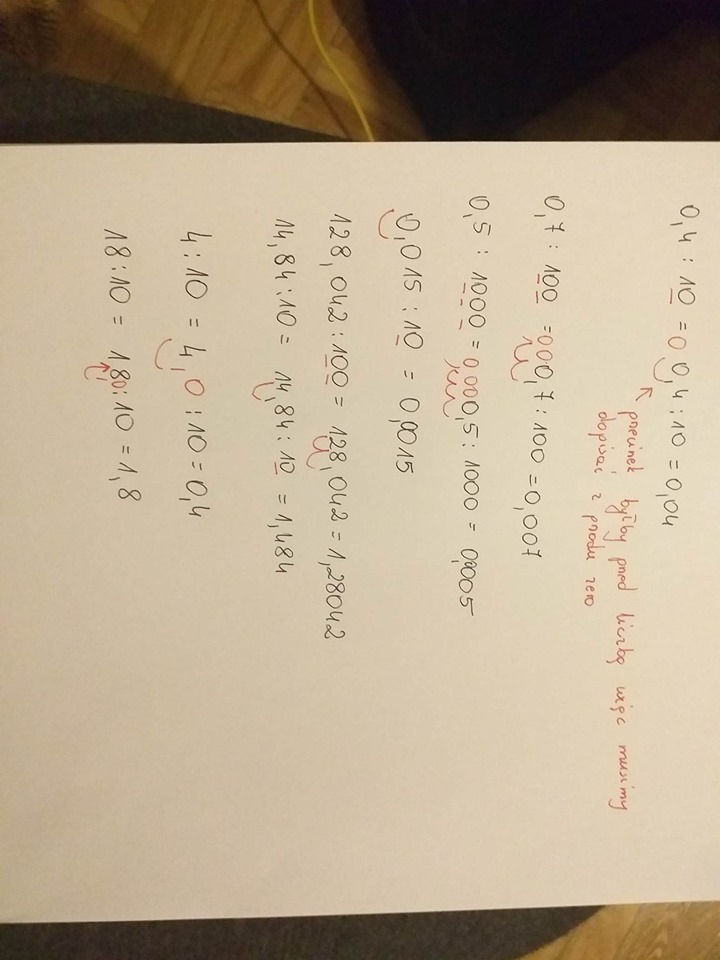 0,4 : 10 = 00,4 : 10 = 0,04
przecinek byłby przed liczbą więc musimy
dopisać z przodu zero
0,7 : 100 = 000,7 : 100 = 0,007
0,5 : 1000 = 0,0000,5 : 1000 = 0,0005
0,015 : 10 = 0,0015
128,042 : 100 = 128,042 = 1,28042
14,84 : 10 = 14,84 : 10 = 1,484
4 : 10 = 4,0 : 10 = 0,4
18 : 10 = 18,0 : 10 = 1,8